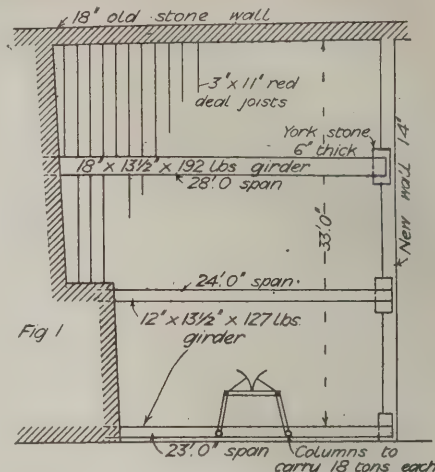 18" old stone wall
3" x 11" red
deal joists
York stone
6" thick
New wall 14"
18" x 13½" x 192 lbs girder
28'.0 span
33'.0"
24'.0" span.
Fig 1
12" x 13½" x 127 lbs.
girder
23'.0" span
Columns to
carry 18 tons each